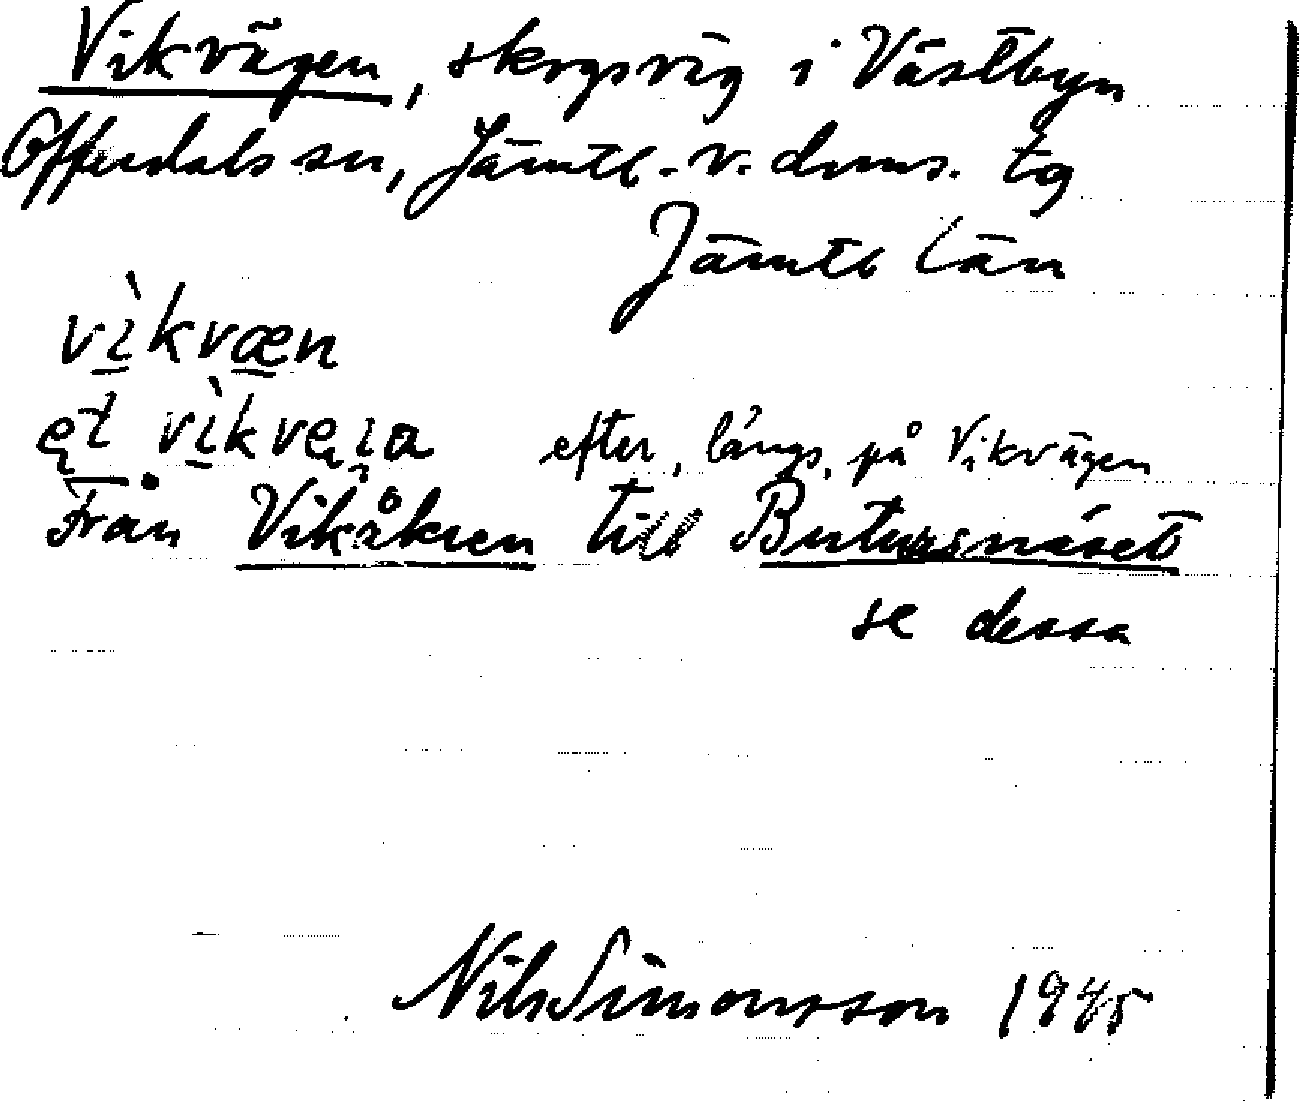 Vikvägen, skogsväg i Västbyn
Offerdals sn, Jämtl. v. doms. tg
Jämtl län
vìkvæn
et vìkveja efter, längs, på Vikvägen
Från Vikåkren till Butursnäset
se dessa
Nils Simonsson 1945